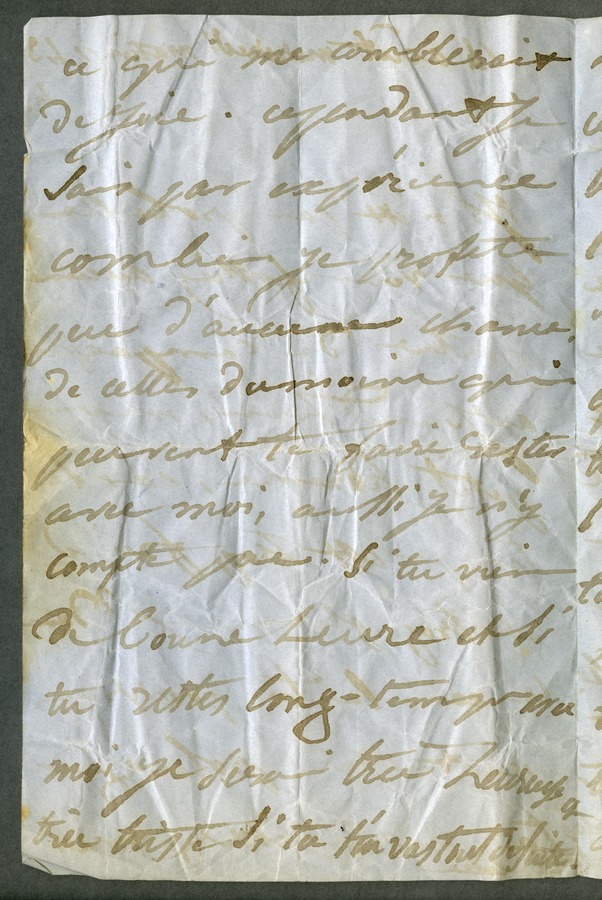 ce qui me comblerait
de joie. cependant je
sais par expérience
combien je profite
peu d'aucune chance,
de celles du moins qui
peuvent te faire rester
avec moi, aussi je n'y
compte pas. Si tu viens
de bonne heure et si
tu restes long-temps avec
moi je serai très heureuse et
très triste si tu t'en vas tout de suite.